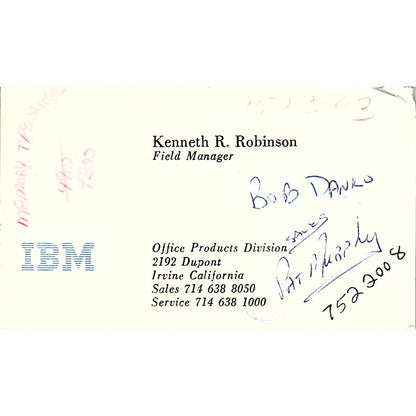 MEMORY TYPEWRITER
4900
7500
Kenneth R. Robinson
Field Manager
BOB DANKO
IBM
Office Products Division
2192 Dupont
Irvine California
Sales 714 638 8050
Service 714 638 1000
SALES
PAT MURPHY
752 2008